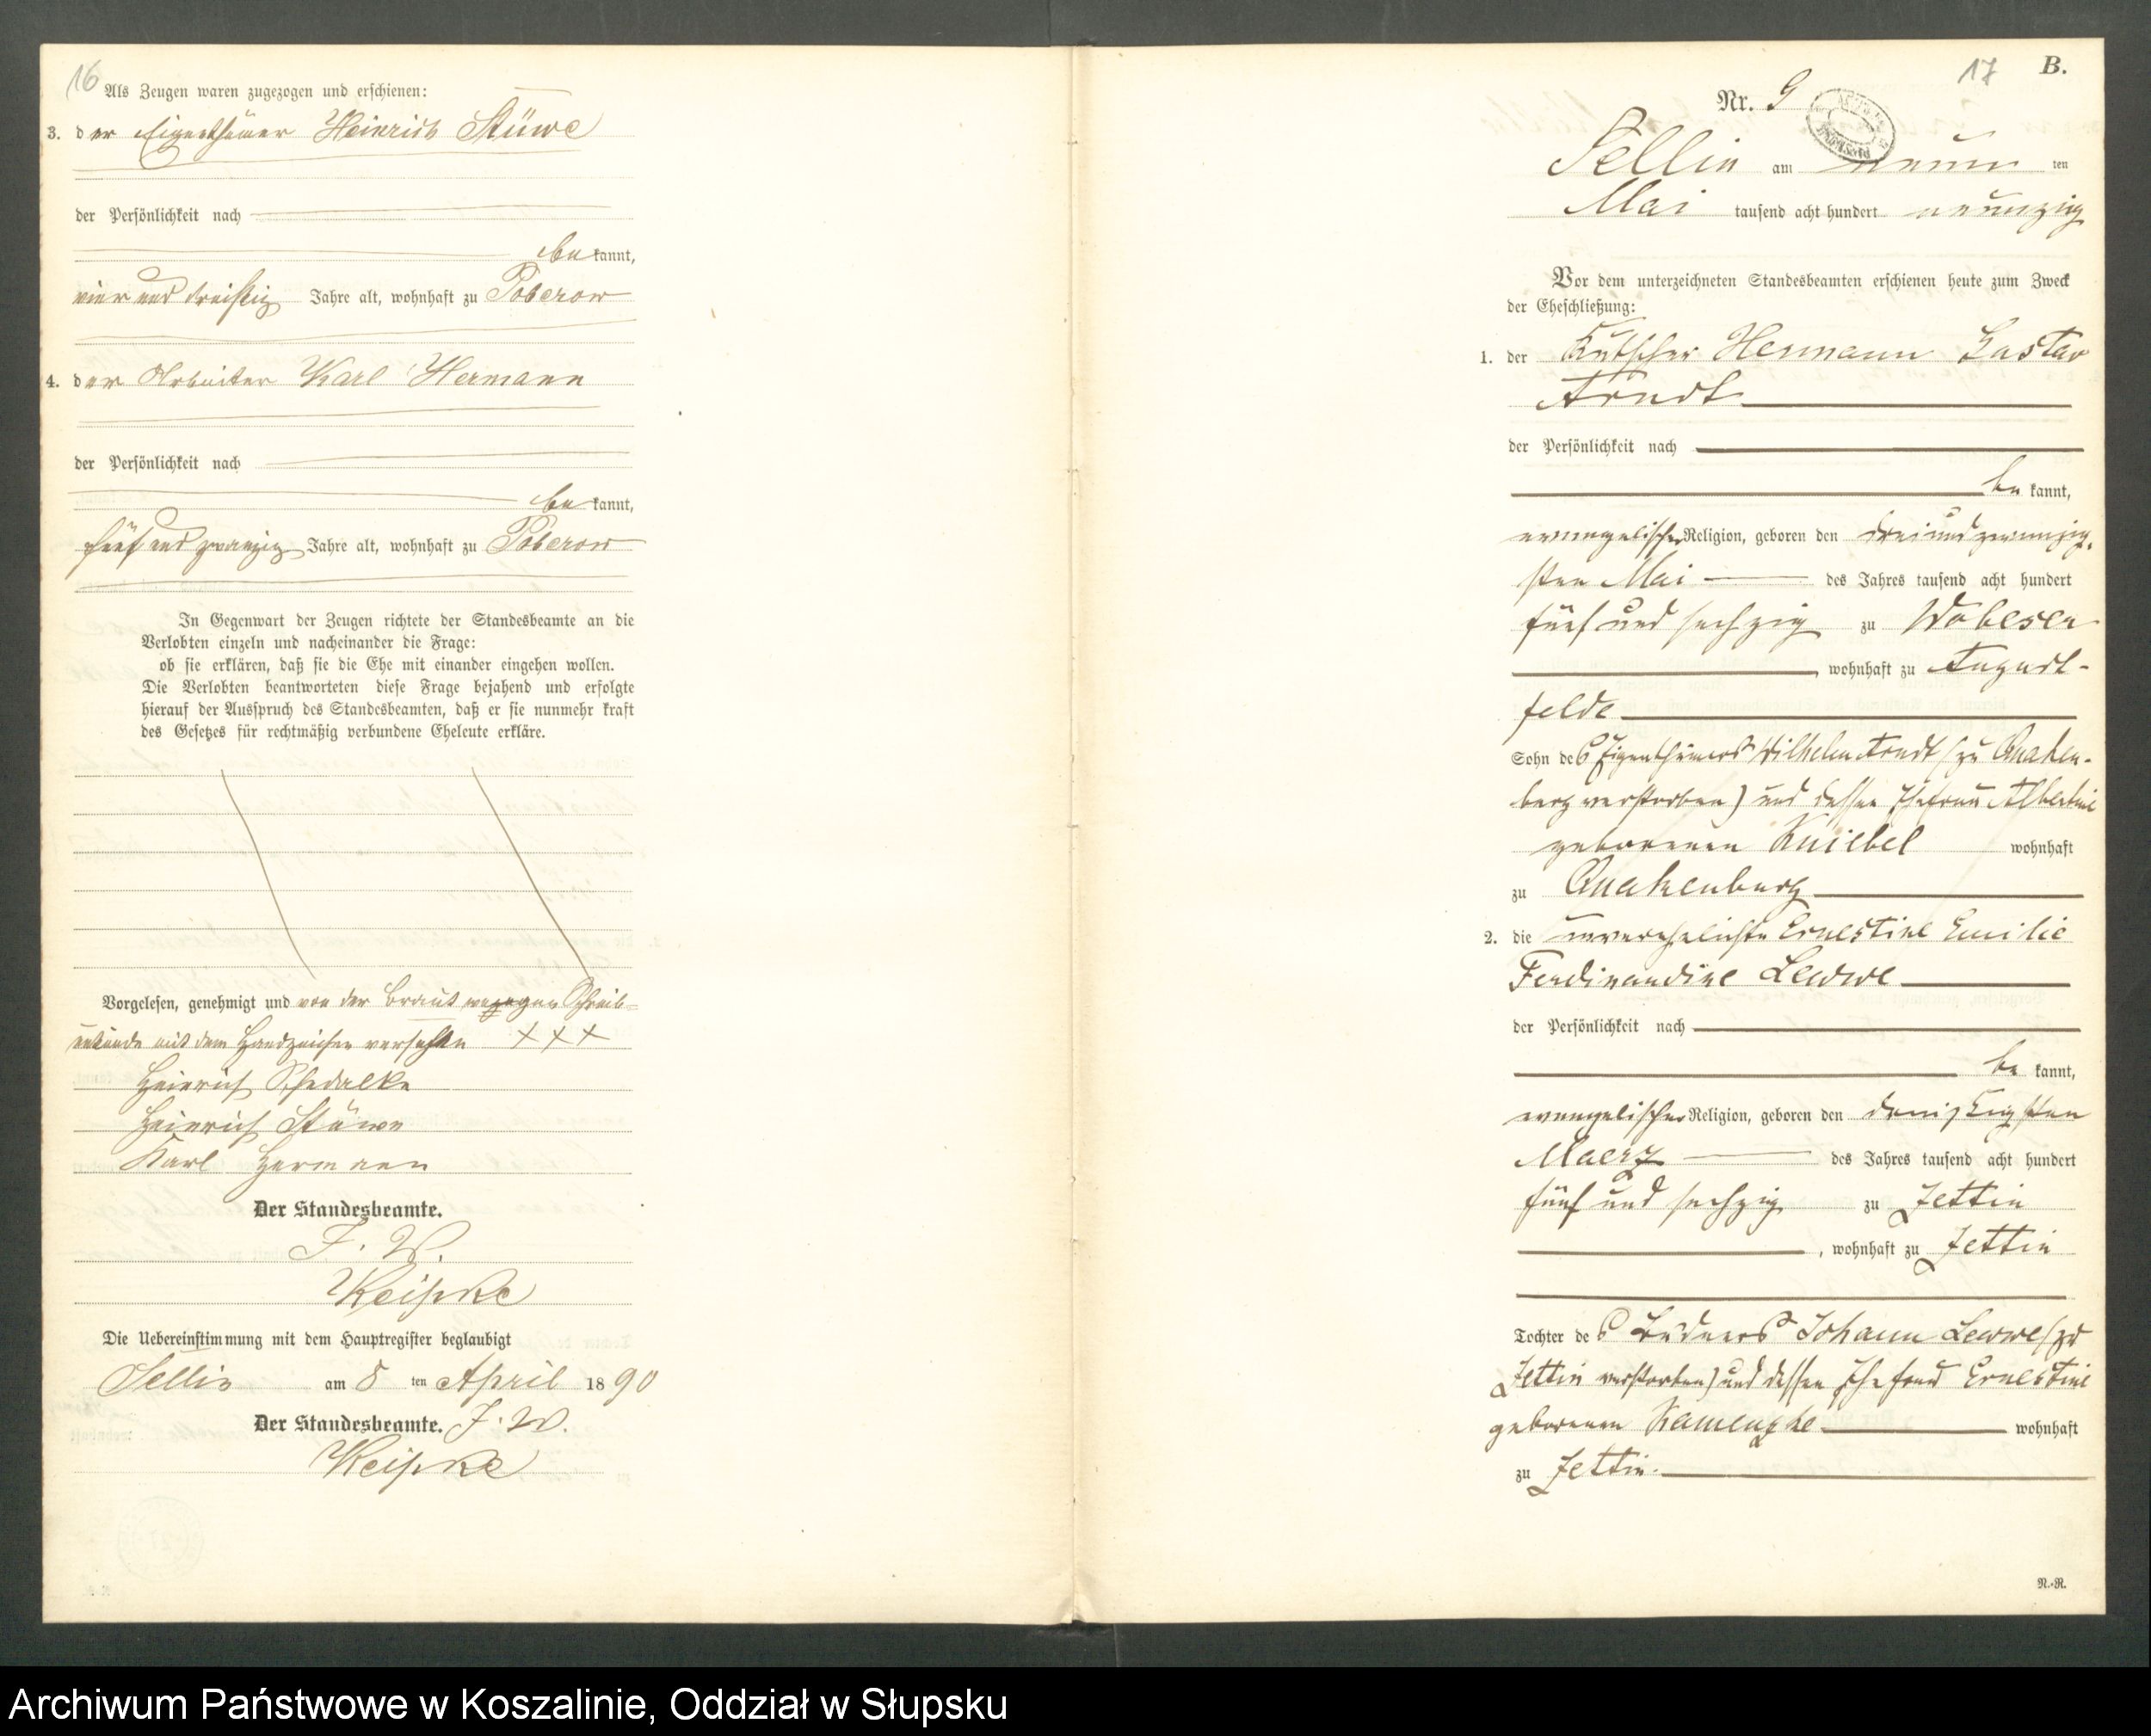 16
Als Zeugen waren zugezogen und erschienen:
3. der Eigenthümer Heinrich Stüwe
der Persönlichkeit nach
bekannt,
vier und dreißig Jahre alt, wohnhaft zu Poberow
4. der Arbeiter Karl Hermann
der Persönlichkeit nach
bekannt,
fünf und zwanzig Jahre alt, wohnhaft zu Poberow
In Gegenwart der Zeugen richtete der Standesbeamte an die
Verlobten einzeln und nacheinander die Frage:
ob sie erklären, daß sie die Ehe mit einander eingehen wollen.
Die Verlobten beantworteten diese Frage bejahend und erfolgte
hierauf der Ausspruch des Standesbeamten, daß er sie nunmehr kraft
des Gesetzes für rechtmäßig verbundene Eheleute erkläre.
Vorgelesen, genehmigt und von der Braut wegen Schreib-
unkunde mit dem Handzeichen versehen +++
Heinrich Schedalke
Heinrich Stüwe
Karl Hermann
Der Standesbeamte.
J. V.
Der Uebereinstimmung mit dem Hauptregister beglaubigt
Sellin am 8 ten April 1890
Der Standesbeamte. J. V.
17 B.
Nr. 9
Sellin am neun ten
Mai tausend acht hundert neunzig
Vor dem unterzeichneten Standesbeamten erschienen heute zum Zweck
der Eheschließung:
1. der Kutscher Hermann Gustav
Arndt
der Persönlichkeit nach
be kannt,
evangelischer Religion, geboren den drei und zwanzig-
sten Mai des Jahres tausend acht hundert
fünf und sechzig zu Wobeser
wohnhaft zu August-
felde
Sohn des Eigenthümers Wilhelm Arndt (zu Quaken-
burg verstorben) und dessen Ehefrau Albertine
geborenen Kniebel wohnhaft
zu Quakenburg
2. die unverehelichte Ernestine Emilie
Ferdinandine Lewwe
der Persönlichkeit nach
be kannt,
evangelischer Religion, geboren den dreißigsten
Maerz des Jahres tausend acht hundert
fünf und sechzig zu Zettin
, wohnhaft zu Zettin
Tochter des Büdners Johann Lewwe (zu
Zettin verstorben) und dessen Ehefrau Ernestine
geborenen Kamenzke wohnhaft
zu Zettin.
N.-R.
Archiwum Państwowe w Koszalinie, Oddział w Słupsku